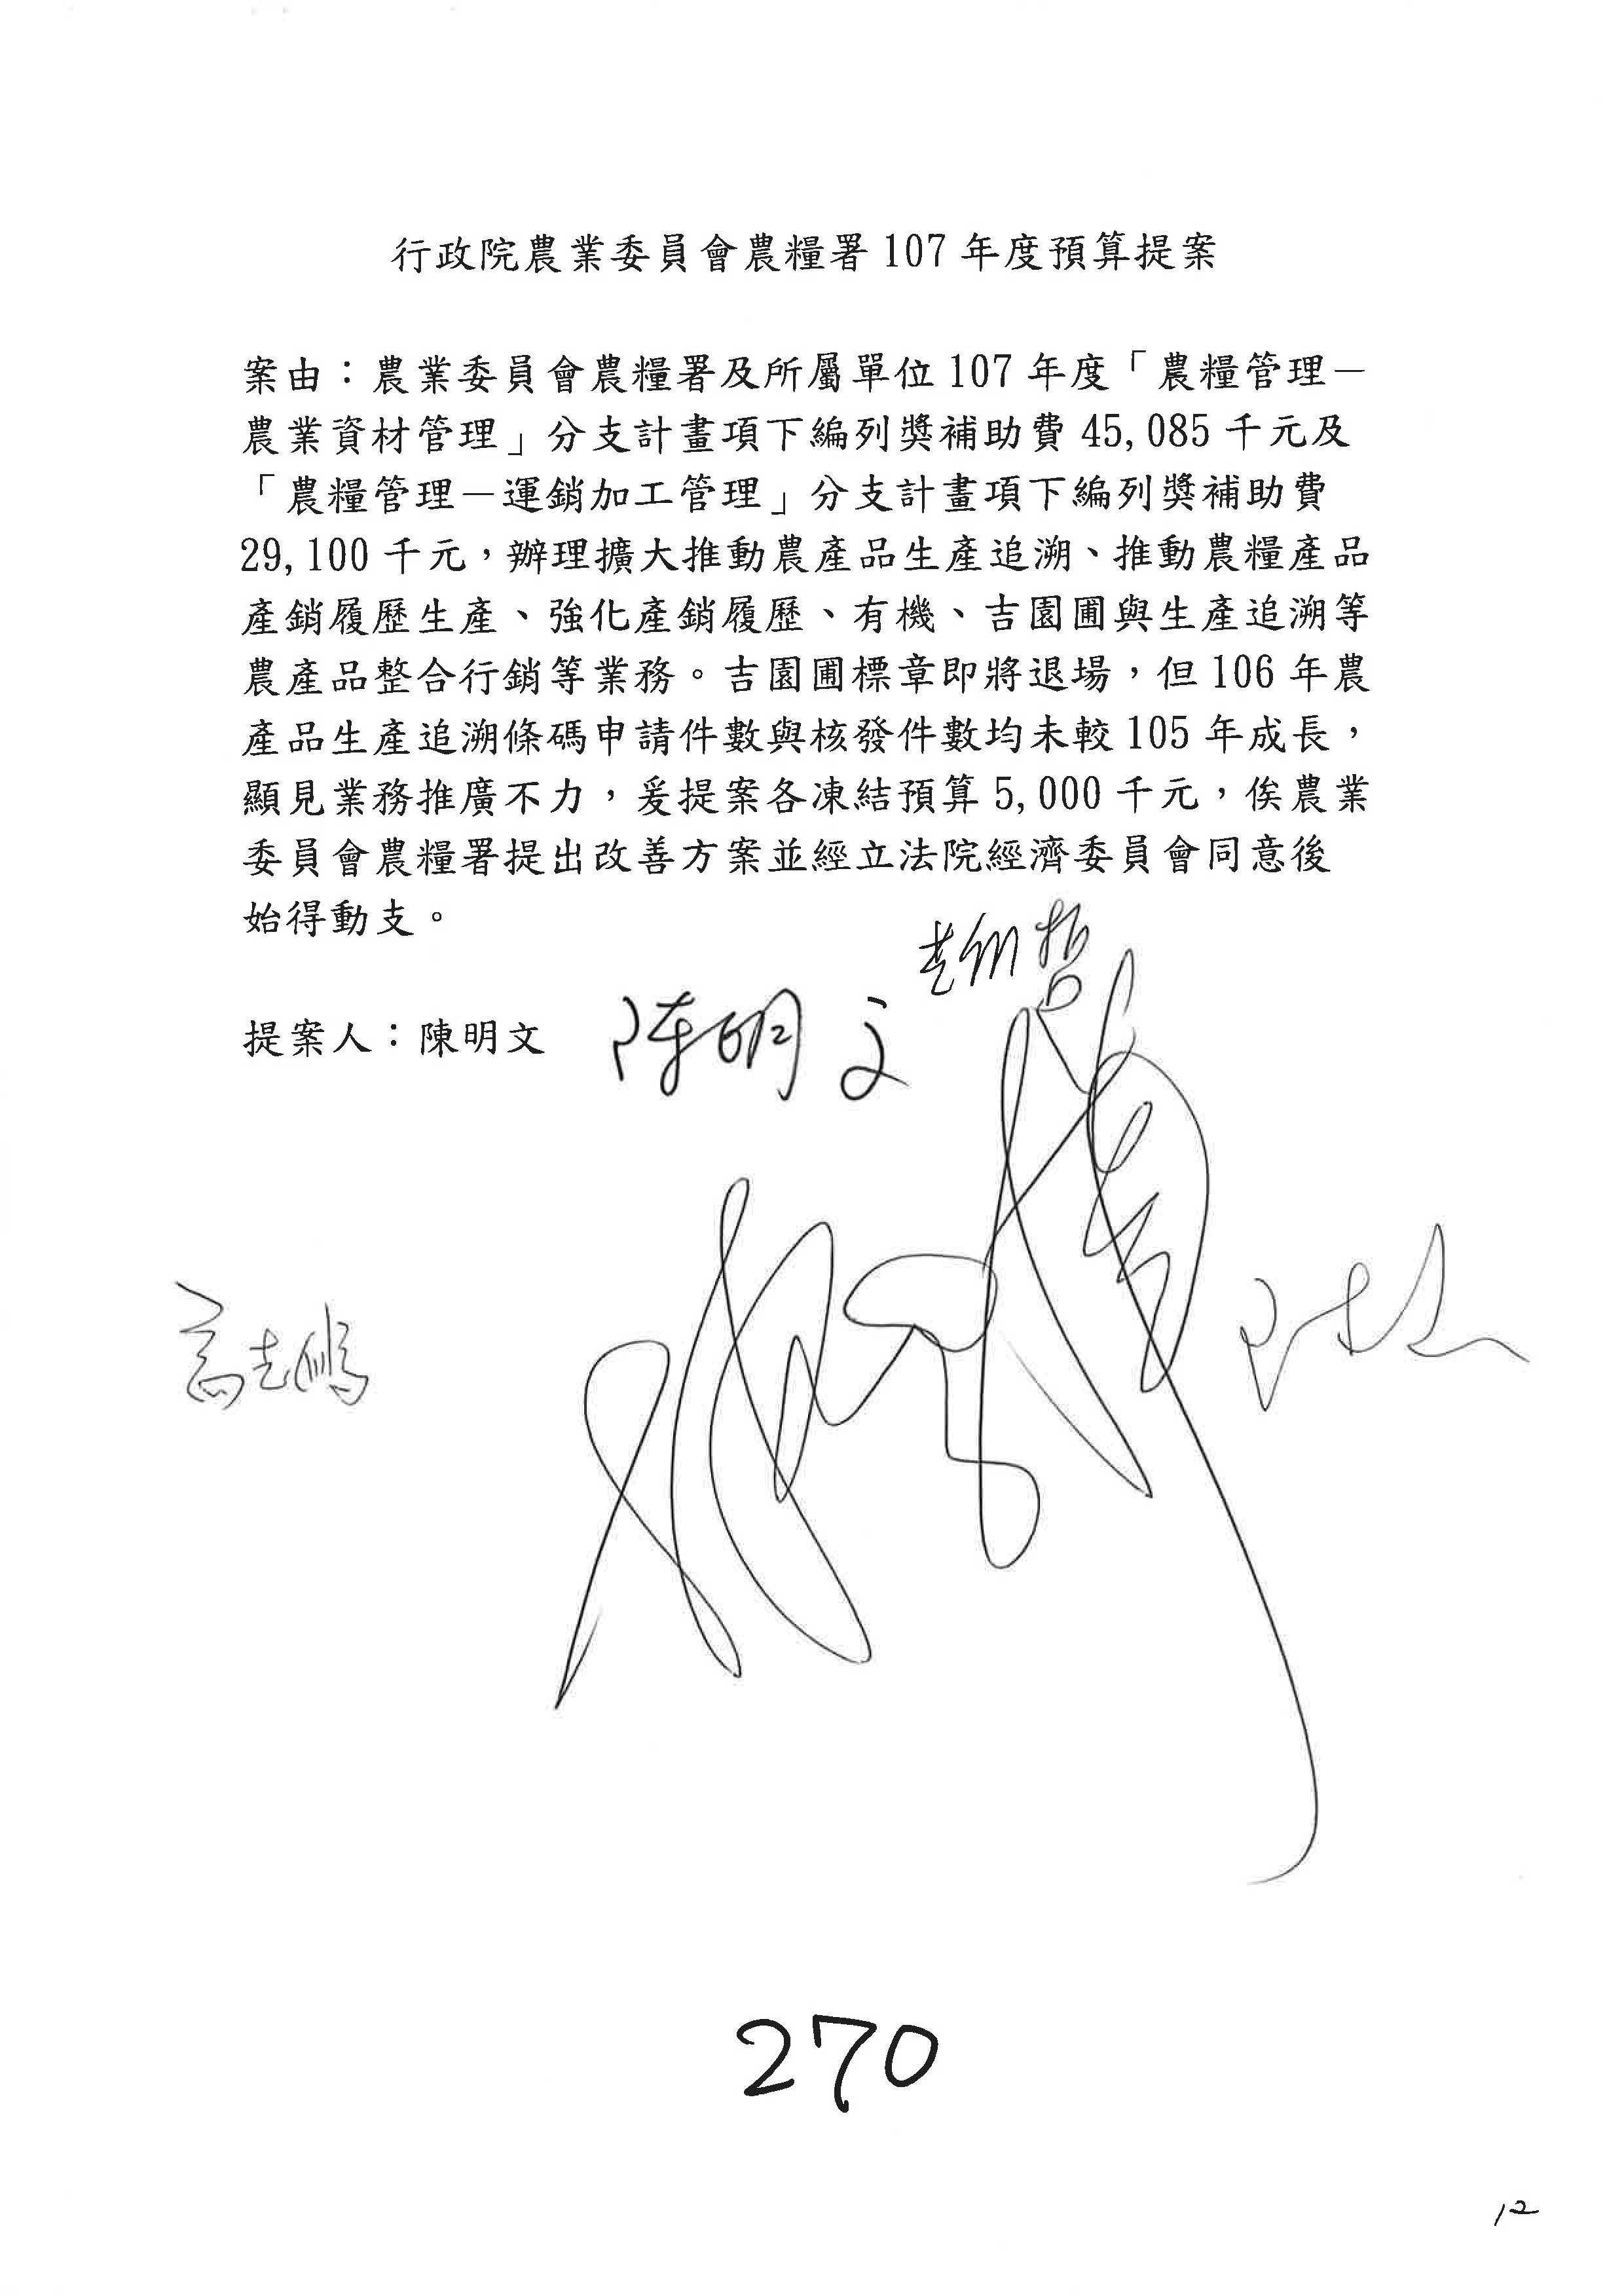 行政院農業委員會農糧署 107 年度預算提案
案由：農業委員會農糧署及所屬單位 107 年度「農糧管理－
農業資材管理」分支計畫項下編列獎補助費 45,085 千元及
「農糧管理－運銷加工管理」分支計畫項下編列獎補助費
29,100 千元，辦理擴大推動農產品生產追溯、推動農糧產品
產銷履歷生產、強化產銷履歷、有機、吉園圃與生產追溯等
農產品整合行銷等業務。吉園圃標章即將退場，但 106 年農
產品生產追溯條碼申請件數與核發件數均未較 105 年成長，
顯見業務推廣不力，爰提案各凍結預算 5,000 千元，俟農業
委員會農糧署提出改善方案並經立法院經濟委員會同意後
始得動支。
提案人：陳明文 陳明文
高志鵬
270
12